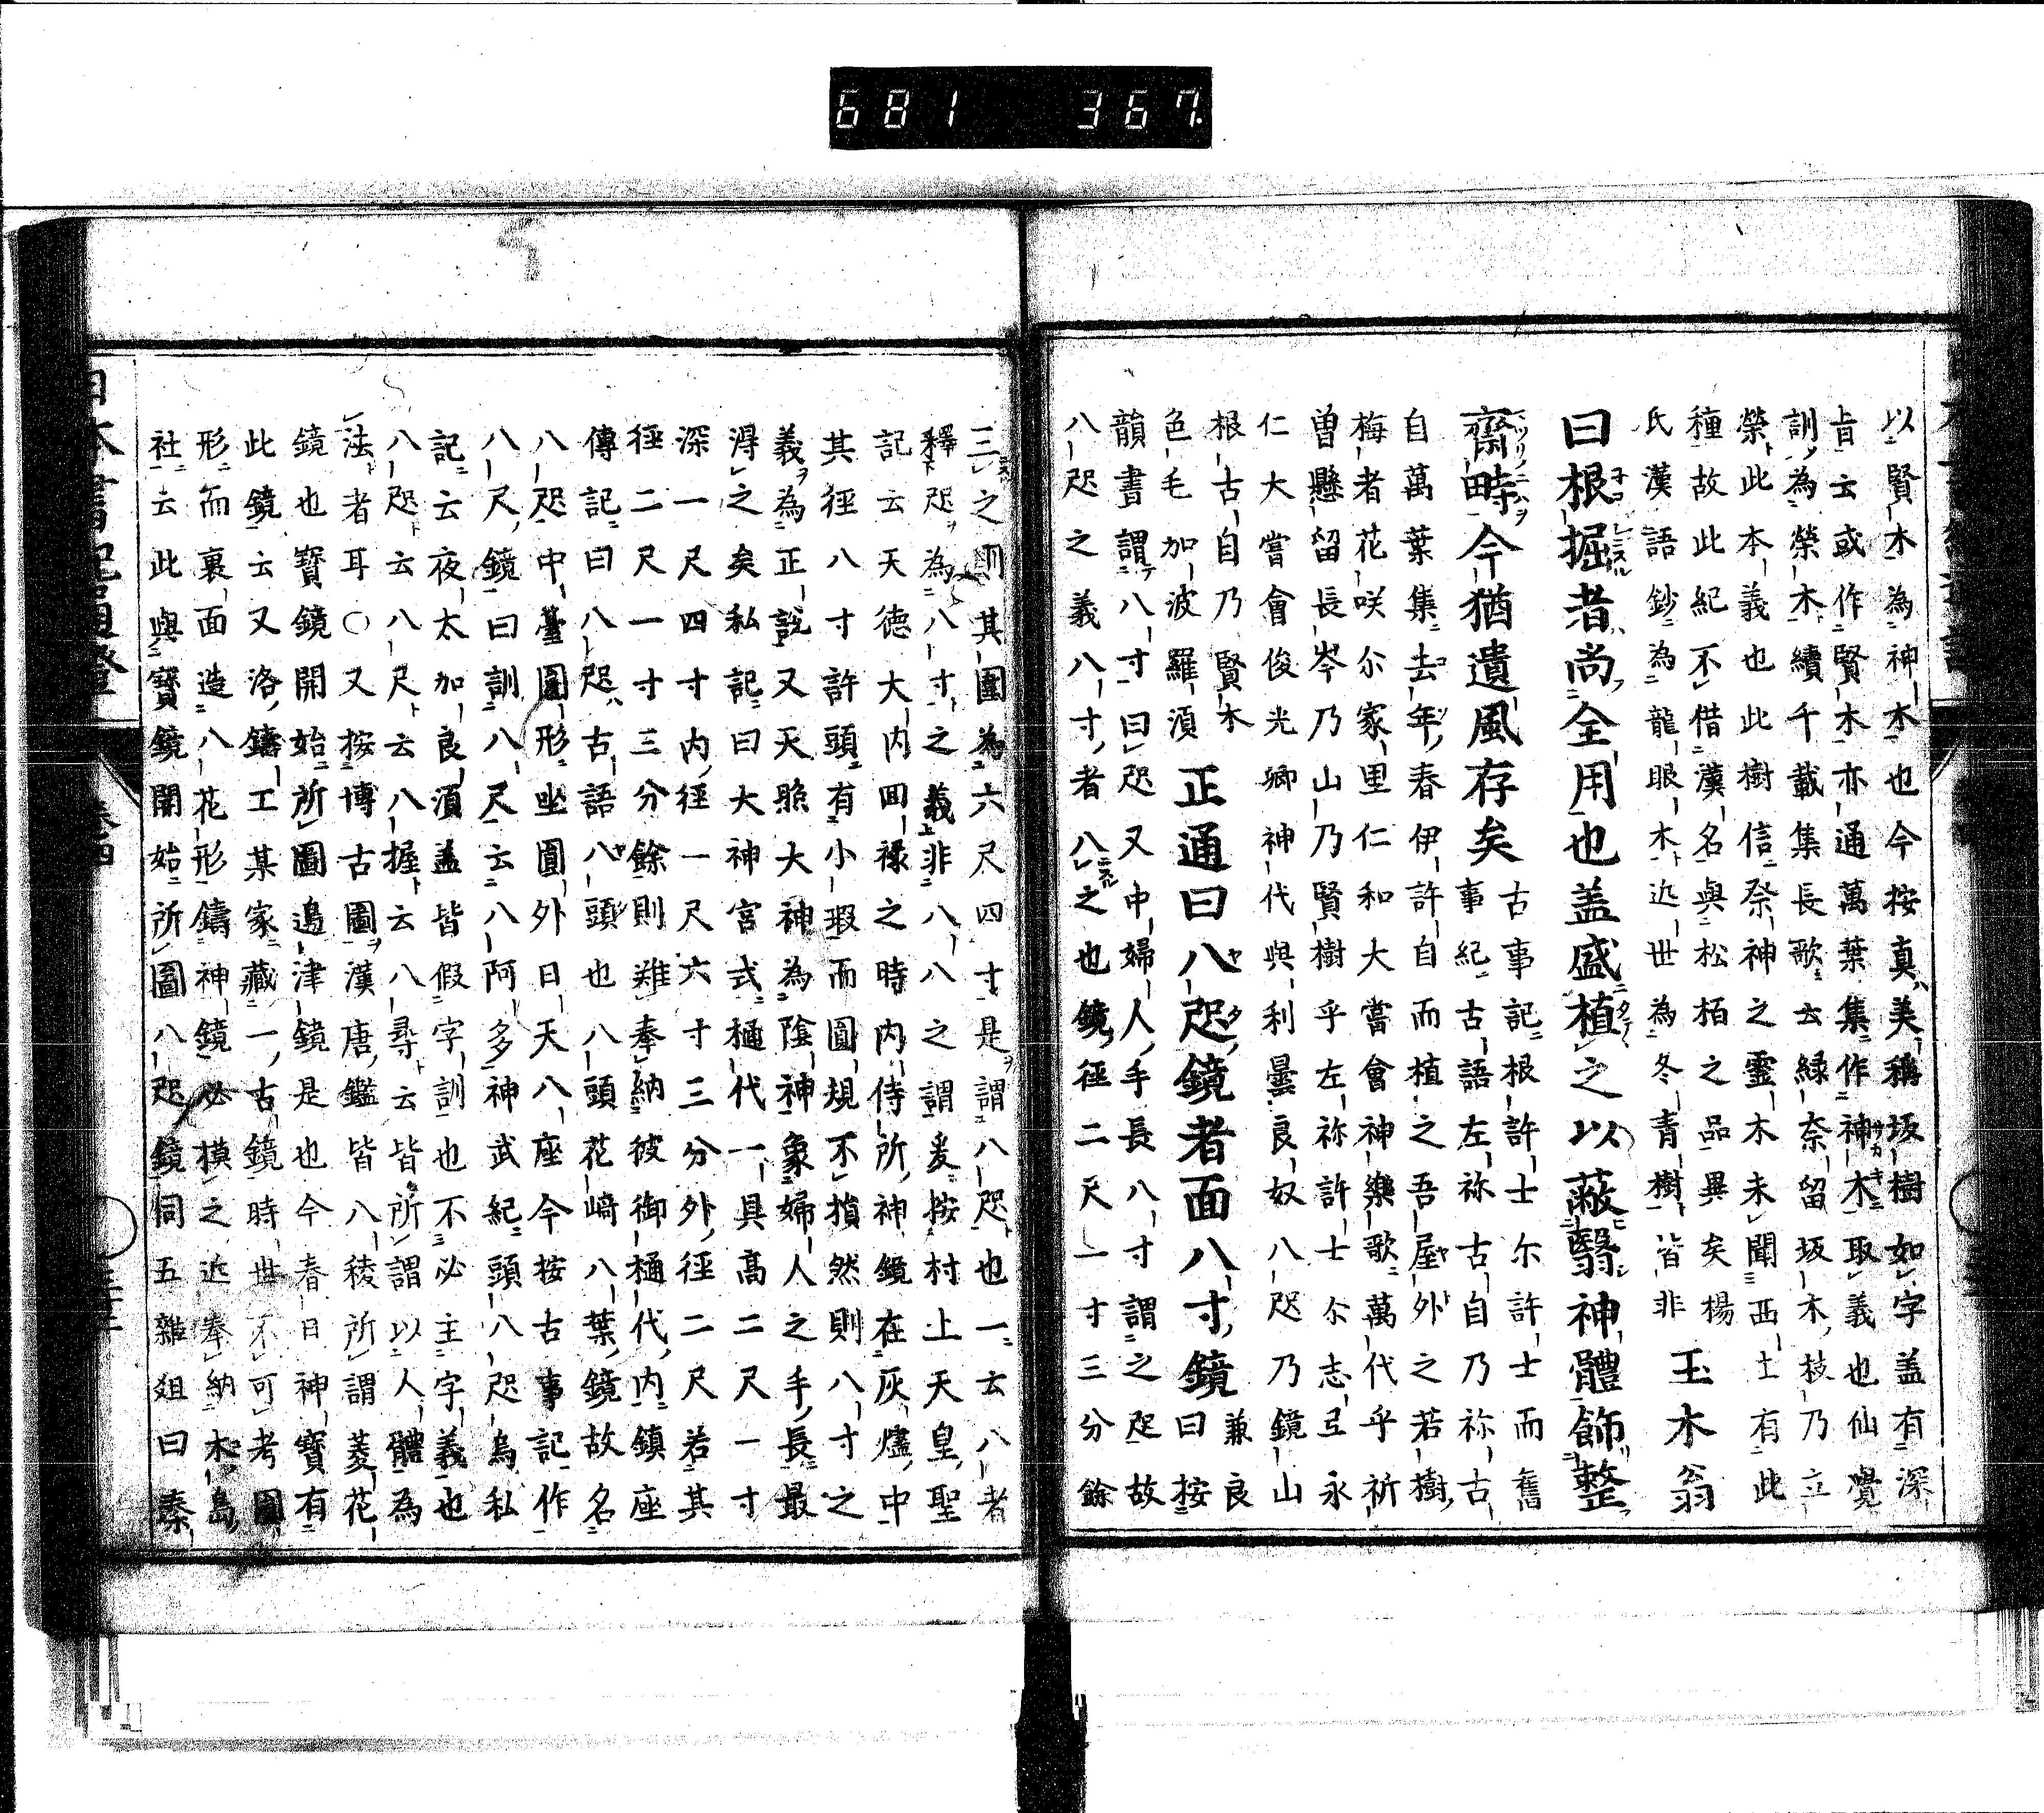 681 367
以賢木為神木也今按真美稱坂樹如字盖有深
旨云或作賢木亦通萬葉集作神木取義也仙覺
訓為榮木續千載集長歌云緑奈留坂木枝乃立
榮此本義也此樹信祭神之靈木未聞西土有此
種故此紀不借漢名與松栢之品異矣楊
氏漢語鈔為龍眼木近世為冬青樹皆非 玉木翁
曰根掘者尚全用也盖盛植之以蔽翳神體飾整
齋時今猶遺風存矣 古事記根許士尓許士而舊
事紀古語左祢古自乃祢古
自萬葉集去年春伊許自而植之吾屋外之若樹
梅者花咲尓家里仁和大嘗會神樂歌萬代乎祈
曽懸留長岑乃山乃賢樹乎左祢許士尓志弖永
仁大嘗會俊光卿神代與利曇良奴八咫乃鏡山
根古自乃賢木
色毛加波羅湏 正通曰八咫鏡者面八寸鏡 兼良
曰按
韻書謂八寸曰咫又中婦人手長八寸謂之咫故
八咫之義八寸者八之也鏡徑二尺一寸三分餘
三之則其圍為六尺四寸是謂八咫也一云八者
釋咫為八寸之義非八八之謂爰按村上天皇聖
記云天徳大内回禄之時内侍所神鏡在灰燼中
其徑八寸許頭有小瑕而圓規不損然則八寸之
義為正說又天照大神為陰神象婦人之手長最
淂之矣私記曰大神宮式樋代一具高二尺一寸
深一尺四寸内徑一尺六寸三分外徑二尺若其
徑二尺一寸三分餘則難奉納彼御樋代内鎮座
傳記曰八咫古語八頭也八頭花崎八葉鏡故名
八咫中臺圓形坐圓外日天八座今按古事記作
八尺鏡曰訓八尺云八阿多神武紀頭八咫烏私
記云夜太加良湏盖皆假字訓也不必主字義也
八咫云八尺云八握云八尋云皆所謂以人體為
法者耳〇又按博古圖漢唐鑑皆八稜所謂菱花
鏡也寳鏡開始所圖邉津鏡是也今春日神寳有
此鏡云又洛鑄工某家藏一古鏡時世不可考圖
形而裏面造八花形鑄神鏡必模之近奉納木島
社云此與寳鏡開始所圖八咫鏡同五雜爼曰秦
日本書紀通證 卷四